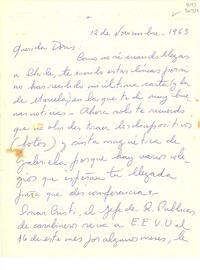 12 de Noviembre - 1963
Querida Doris:
Como no sé cuando llegas
a Chile, te mando estas líneas por si
no has recibido mi última carta, (y la
de Marcela) en la que te di muy
buenas noticias - Ahora solo te recuerdo
que no olvides traer las diapositivas
(fotos) y cinta magnética de
Gabriela porque hay varios cole-
gios que esperan tu llegada
para que des conferencias -
Oscar Cristi, el Jefe de R. Públicas
de carabineros se va a E.E.U.U. el
16 de este mes por algunos meses, le